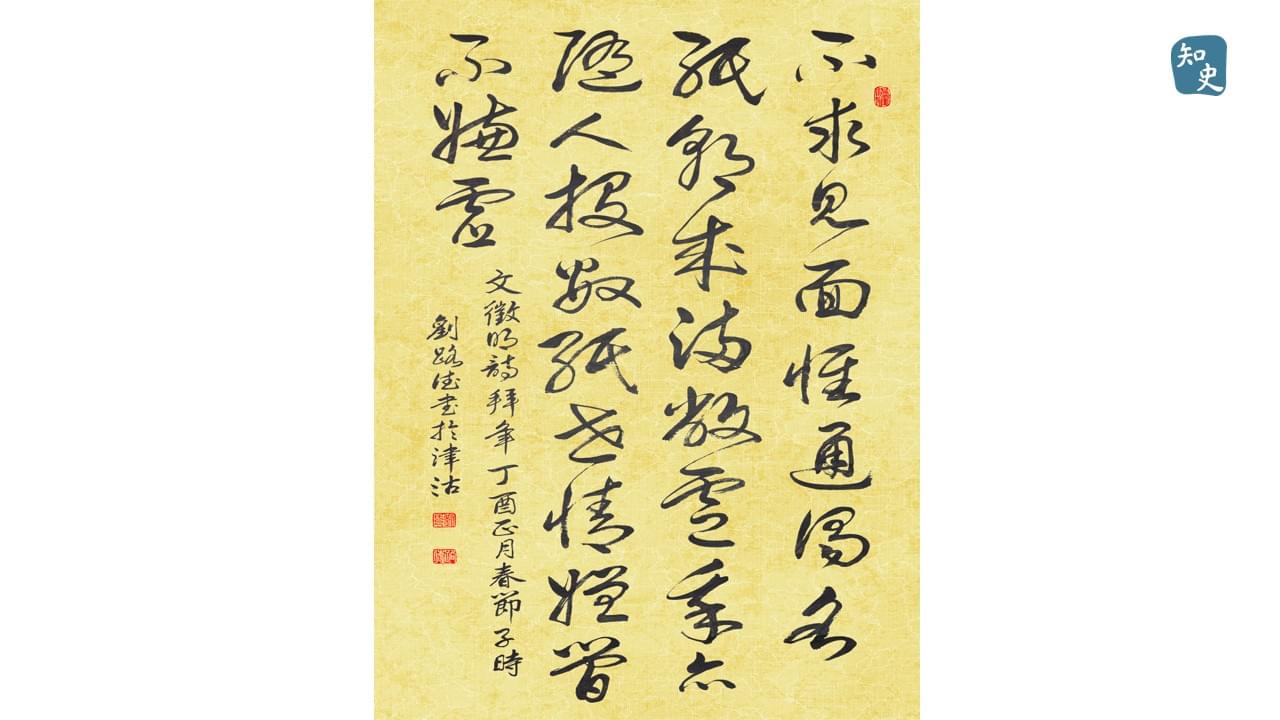 不求見面惟通謁名
紙朝來滿敝廬我亦
隨人投數紙世情嫌簡
不嫌虛
文徵明詩拜年丁酉正月春節子時
劉路書於津沽
知史